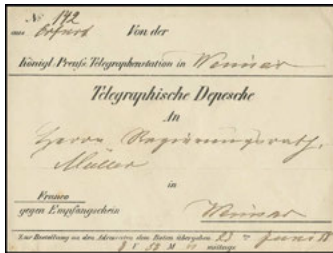 No 192
aus Erfurt Von der
Königl. Preuß. Telegraphenstation in Weimar
Telegraphische Depesche
An
Herrn Regierungsrath
Müller
in
Franco
gegen Empfangschein Weimar
Zur Bestellung an den Adressaten dem Boten übergeben 23 Juni
8 U M mittags